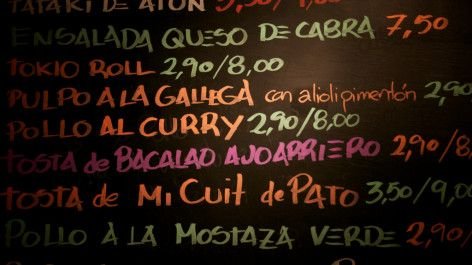 TATAKI DE ATÚN 3,50/9,00
ENSALADA QUESO DE CABRA 7,50
TOKIO ROLL 2,90/8,00
PULPO A LA GALLEGA con alioli pimentón 2,90
POLLO AL CURRY 2,90/8,00
TOSTA de BACALAO AJOARRIERO 2,90/8
TOSTA de MI CUIT de PATO 3,50/9,0
POLLO A LA MOSTAZA VERDE 2,90/